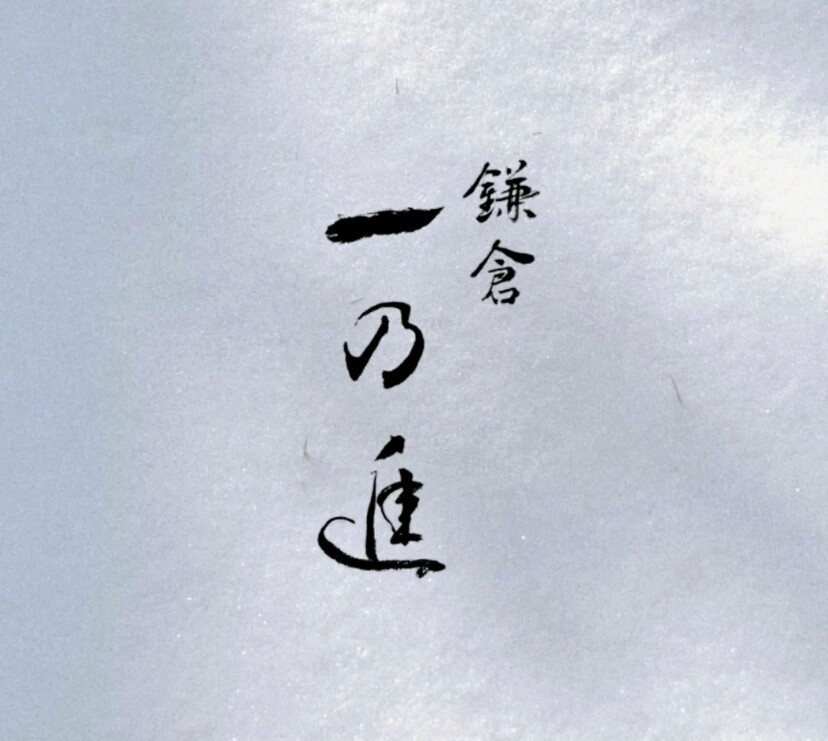 鎌倉
一乃進